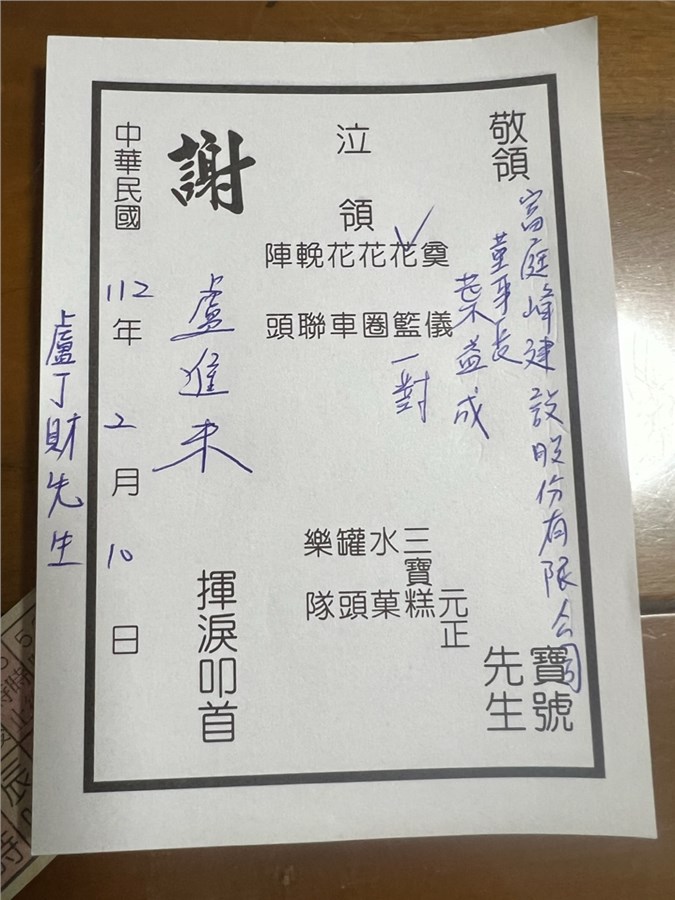 敬領
富庭峰建設股份有限公司 寶號
董事長
葉益成 先生
泣領
奠儀 元正
花籃 一對 三寶糕
花圈 水菓
花車 罐頭
輓聯 樂隊
陣頭
謝
盧進未 揮淚叩首
中華民國 112 年 2 月 10 日
盧丁財先生